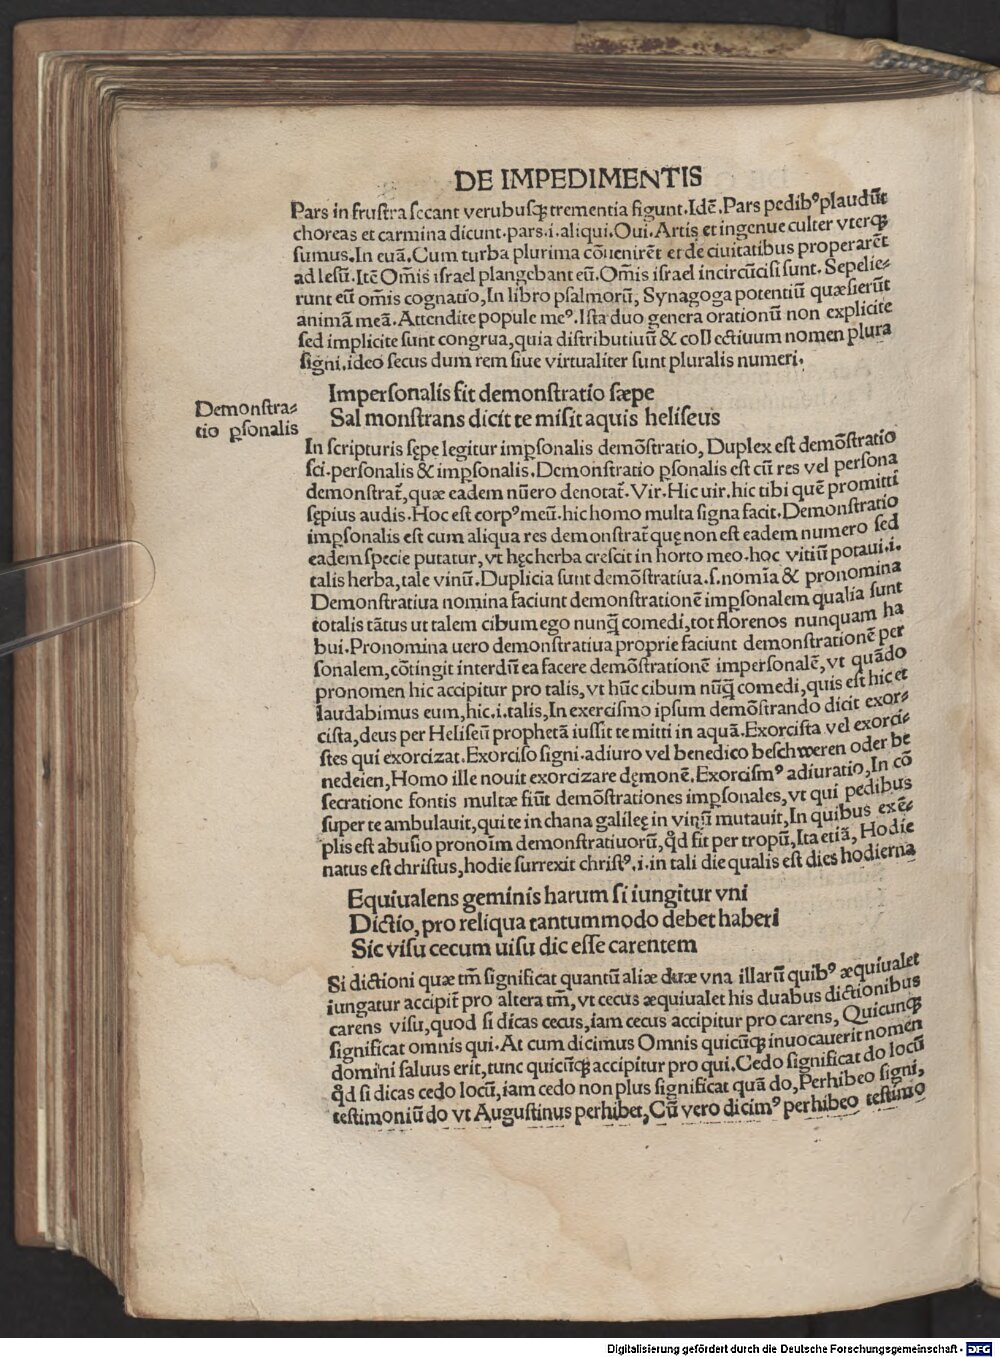 DE IMPEDIMENTIS
Pars in fruſtra ſecant verubuſqꝫ trementia figunt. Idē. Pars pedibꝰ plaudūt
choreas et carmina dicunt. pars .i. aliqui. Oui. Artis et ingenue culter vterqꝫ
ſumus. In euā. Cum turba plurima cōuenirēt et de ciuitatibus properarēt
ad Ieſū. Itē Om̄is iſrael plangebant eū. Om̄is iſrael incircūciſi ſunt. Sepelie⸗
runt eū om̄is cognatio, In libro pſalmorū, Synagoga potentiū quæſierūt
animā meā. Attendite popule meꝰ. Iſta duo genera orationū non explicite
ſed implicite ſunt congrua, quia diſtributiuū & collectiuum nomen plura
ſigni. ideo ſecus dum rem ſiue virtualiter ſunt pluralis numeri.
Imperſonalis fit demonſtratio ſæpe
Sal monſtrans dicit te miſit aquis heliſeus
Demonſtra⸗
tio ꝑſonalis
In ſcripturis ſępe legitur imꝑſonalis demōſtratio, Duplex eſt demōſtratio
ſci. perſonalis & imꝑſonalis. Demonſtratio ꝑſonalis eſt cū res vel perſona
demonſtrat̄, quæ eadem nūero denotat̄. Vir. Hic uir. hic tibi quē promitti
ſępius audis. Hoc eſt corpꝰ meū. hic homo multa ſigna facit. Demonſtratio
imꝑſonalis eſt cum aliqua res demonſtrat̄ quę non eſt eadem numero ſed
eadem ſpecie putatur, vt hęc herba creſcit in horto meo. hoc vitiū potaui .i.
talis herba, tale vinū. Duplicia ſunt demōſtratiua. ſ. nomīa & pronomina
Demonſtratiua nomina faciunt demonſtrationē imꝑſonalem qualia ſunt
totalis tātus ut talem cibum ego nunꝗ̄ comedi, tot florenos nunquam ha
bui. Pronomina uero demonſtratiua proprie faciunt demonſtrationē per
ſonalem, cōtingit interdū ea facere demōſtrationē imperſonalē, vt quādo
pronomen hic accipitur pro talis, vt hūc cibum nūꝗ̄ comedi, quis eſt hic et
laudabimus eum, hic .i. talis, In exerciſmo ipſum demōſtrando dicit exor⸗
ciſta, deus per Heliſeū prophetā iuſſit te mitti in aquā. Exorciſta vel exorci⸗
ſtes qui exorcizat. Exorciſo ſigni. adiuro vel benedico beſchweren oder be
nedeien, Homo ille nouit exorcizare dęmonē. Exorciſmꝰ adiuratio, In cō
ſecratione fontis multæ fiūt demōſtrationes imꝑſonales, vt qui pedibus
ſuper te ambulauit, qui te in chana galileę in vinū mutauit, In quibus exē⸗
plis eſt abuſio pronoīm demonſtratiuorū, ꝙd fit per tropū, Ita etiā, Hodie
natus eſt chriſtus, hodie ſurrexit chriſtꝰ .i. in tali die qualis eſt dies hodierna
Equiualens geminis harum ſi iungitur vni
Dictio, pro reliqua tantummodo debet haberi
Sic viſu cecum uiſu dic eſſe carentem
Si dictioni quæ tm̄ ſignificat quantū aliæ duæ vna illarū quibꝰ æquiualet
iungatur accipit̄ pro altera tm̄, vt cecus æquiualet his duabus dictionibus
carens viſu, quod ſi dicas cecus, iam cecus accipitur pro carens, Quicunqꝫ
ſignificat omnis qui. At cum dicimus Omnis quicūqꝫ inuocauerit nomen
domini ſaluus erit, tunc quicūqꝫ accipitur pro qui. Cedo ſignificat do locū
ꝙd ſi dicas cedo locū, iam cedo non plus ſignificat quā do, Perhibeo ſigni,
teſtimoniū do vt Auguſtinus perhibet, Cū vero dicimꝰ perhibeo teſtimo
Digitalisierung gefördert durch die Deutsche Forschungsgemeinschaft - DFG